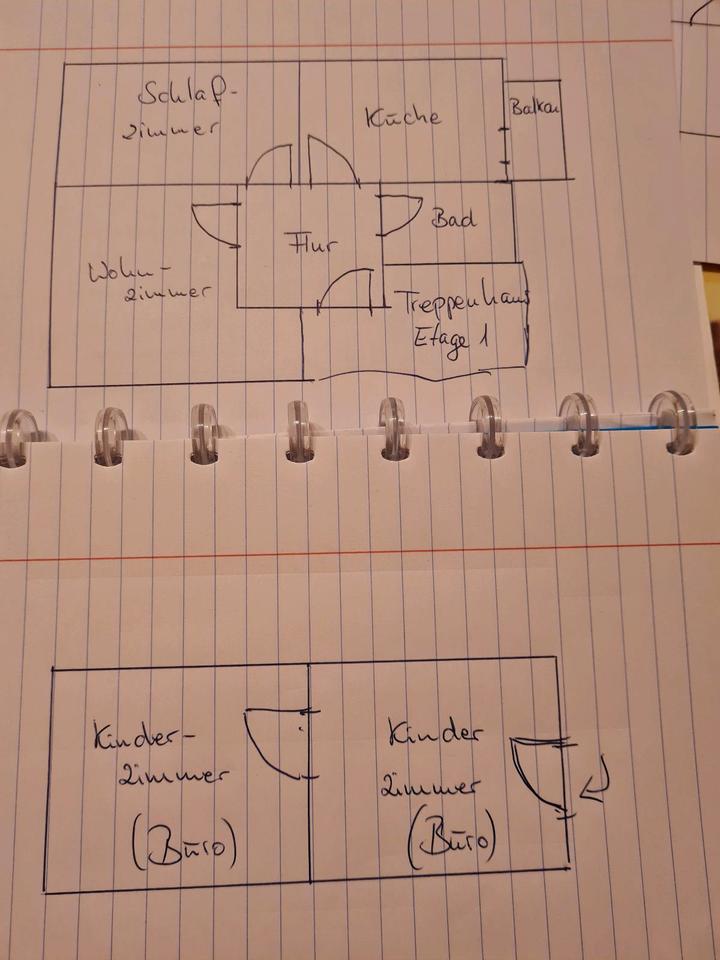 Schlaf-
zimmer
Küche
Balkon
Wohn-
zimmer
Flur
Bad
Treppenhaus
Etage 1
Kinder-
zimmer
(Büro)
Kinder
zimmer
(Büro)